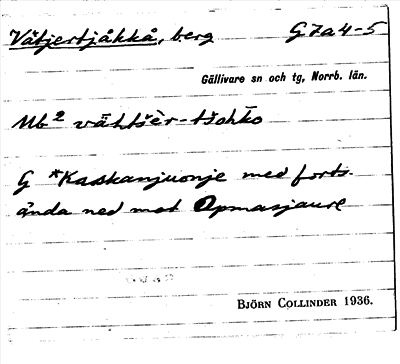 Vätjertjåkkå, berg G7a4-5
Gällivare sn och tg, Norrb. län.
Mb² vähtšèr-tšohko
G *Kaskanjuonje med forts.
ända ned mot Opmasjaure
BJÖRN COLLINDER 1936.